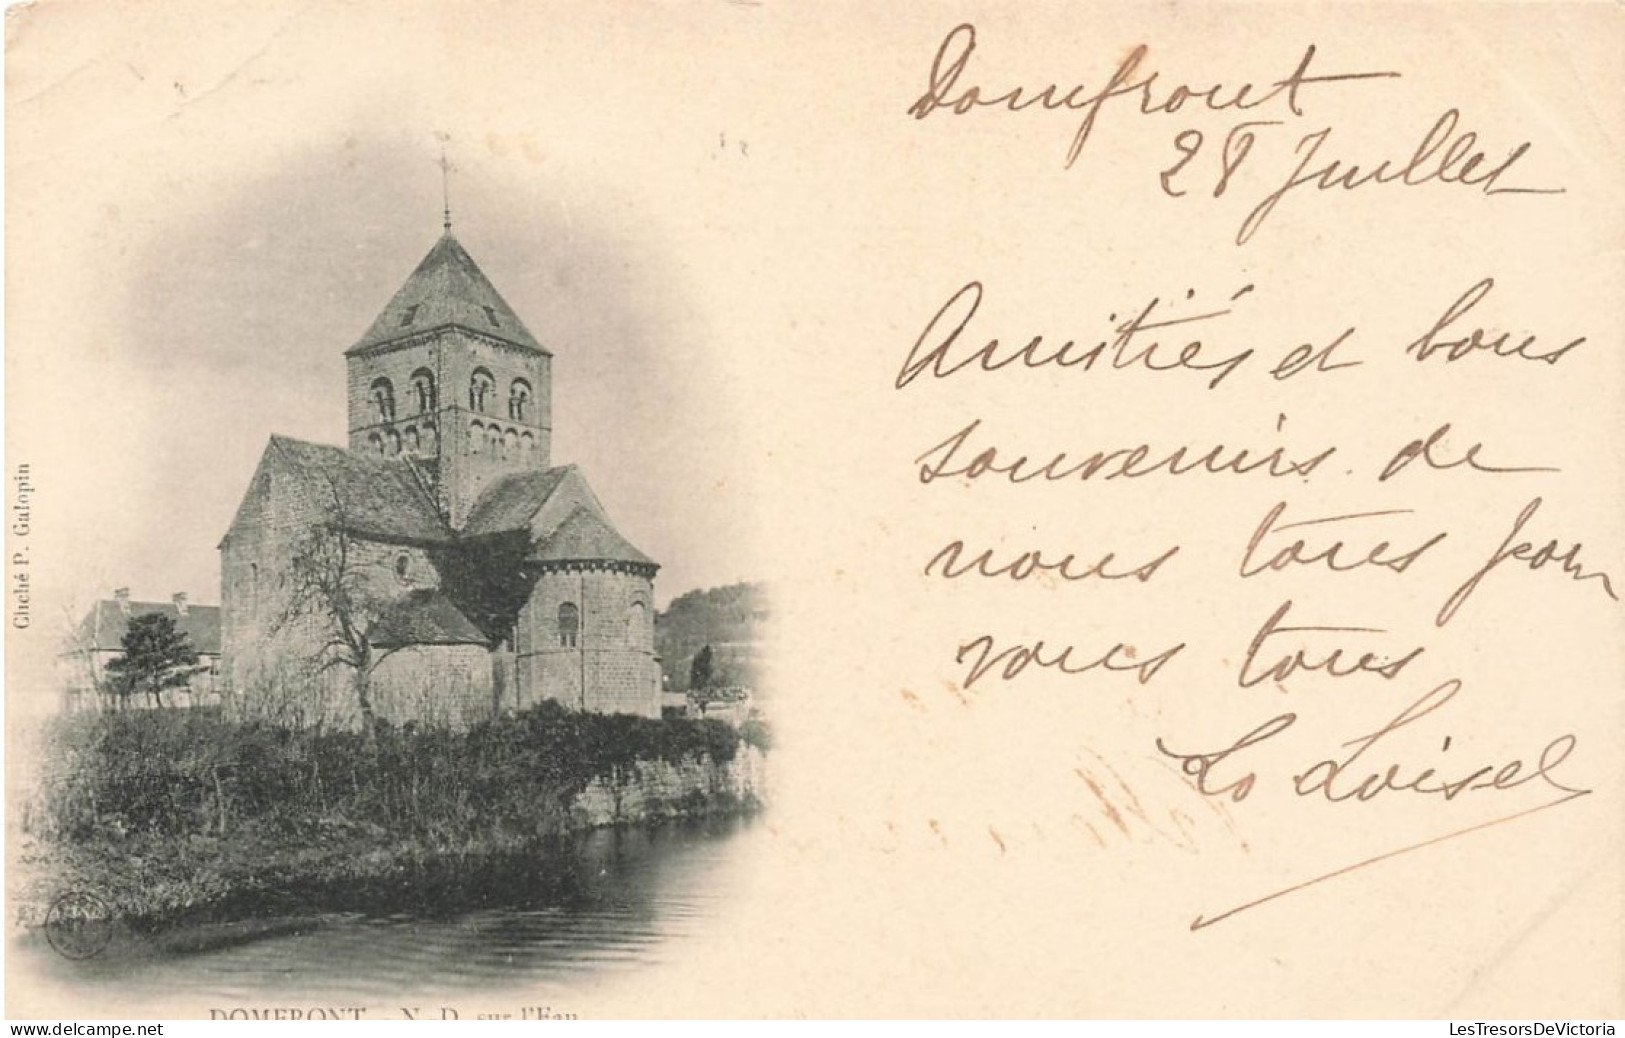 Domfront
28 Juillet
Amitiés et bons
souvenirs de
nous tous pour
vous tous
Loisel
Cliché P. Galopin
DOMFRONT. - N.-D. sur l'Eau
delcampe.net
LesTresorsDeVictoria